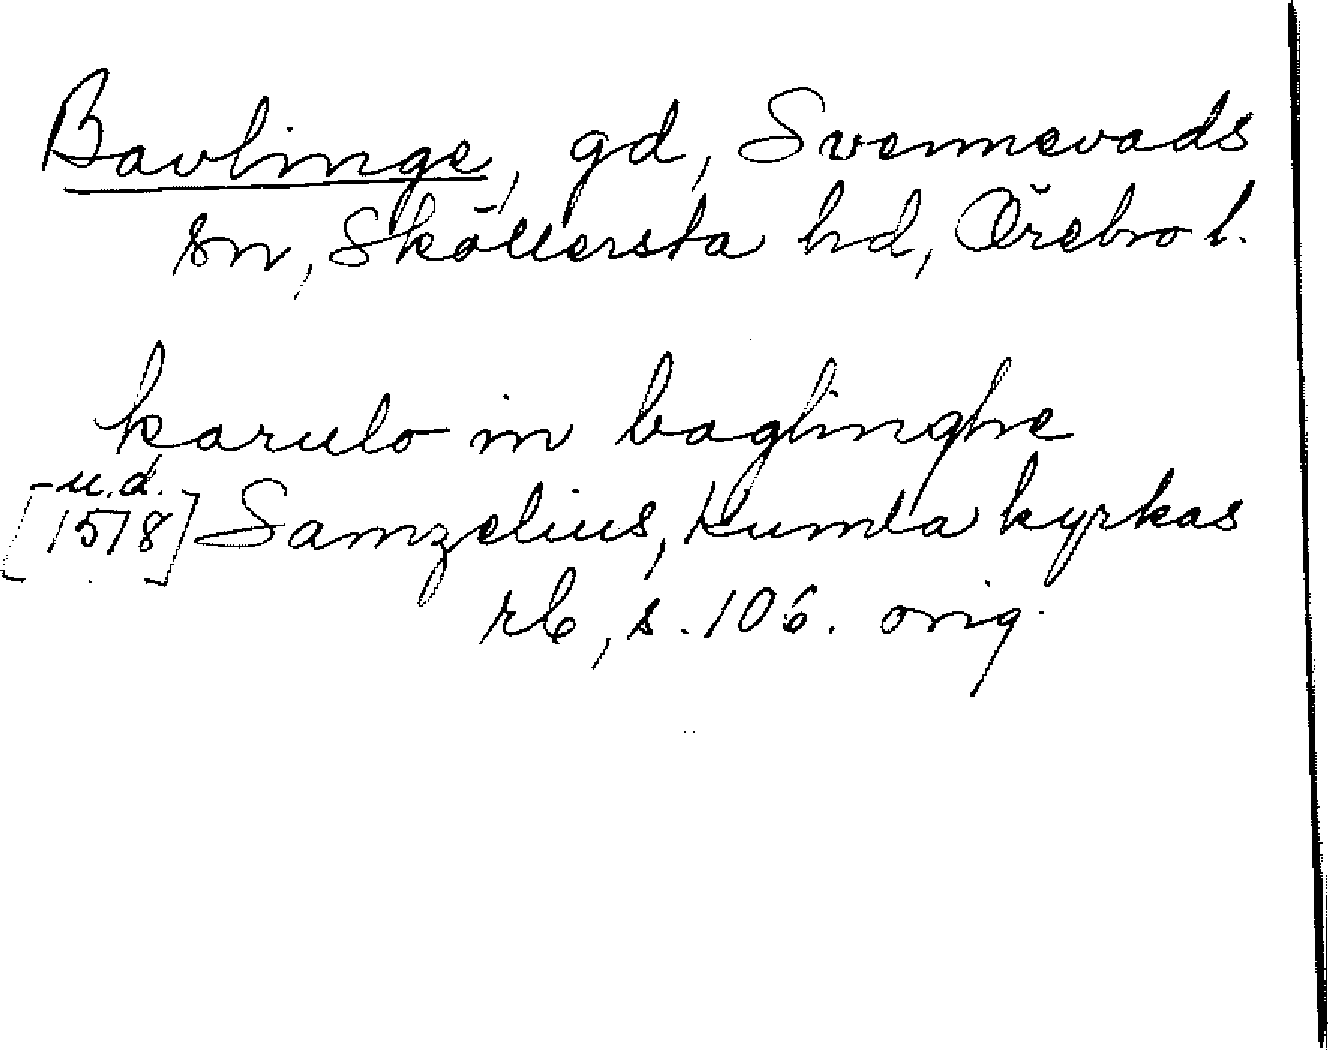 Bavlinge, gd, Svennevads
sn, Sköllersta hd, Örebro l.
karulo in baglinghe
u.d.
[1578] Samzelius, Kumla kyrkas
rb, s. 106. orig.